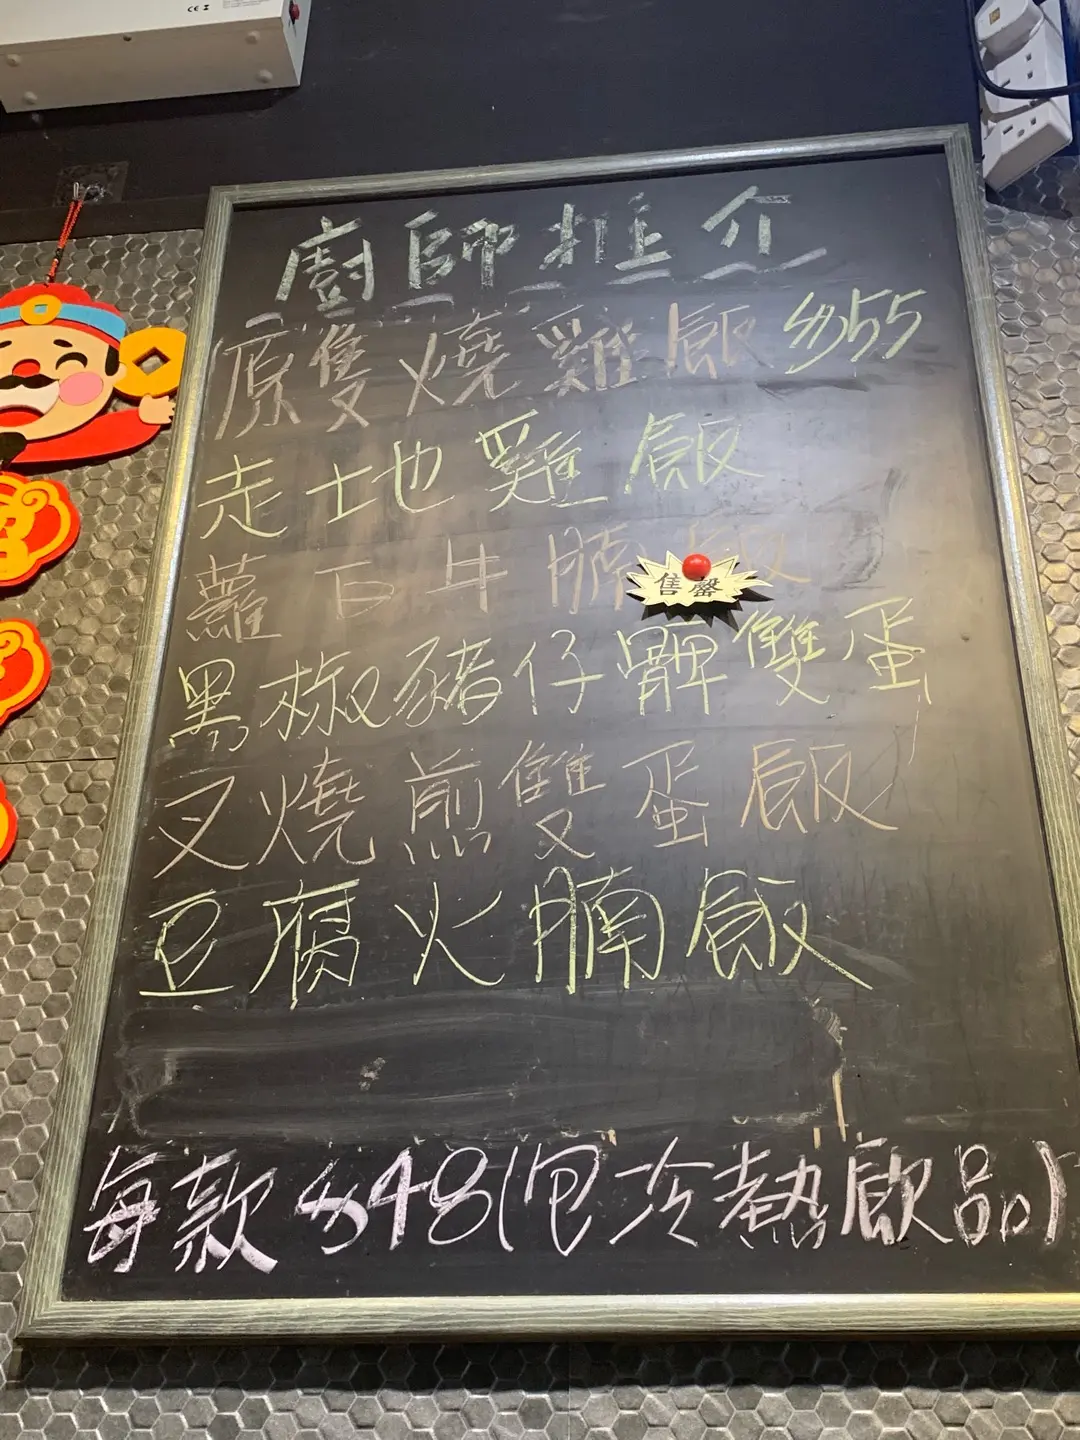 廚師推介
原隻燒雞飯 $55
走地雞飯
蘿白牛腩飯
售罄
黑椒豬仔髀雙蛋
叉燒煎雙蛋飯
豆腐火腩飯
每款$48(包冷熱飲品)